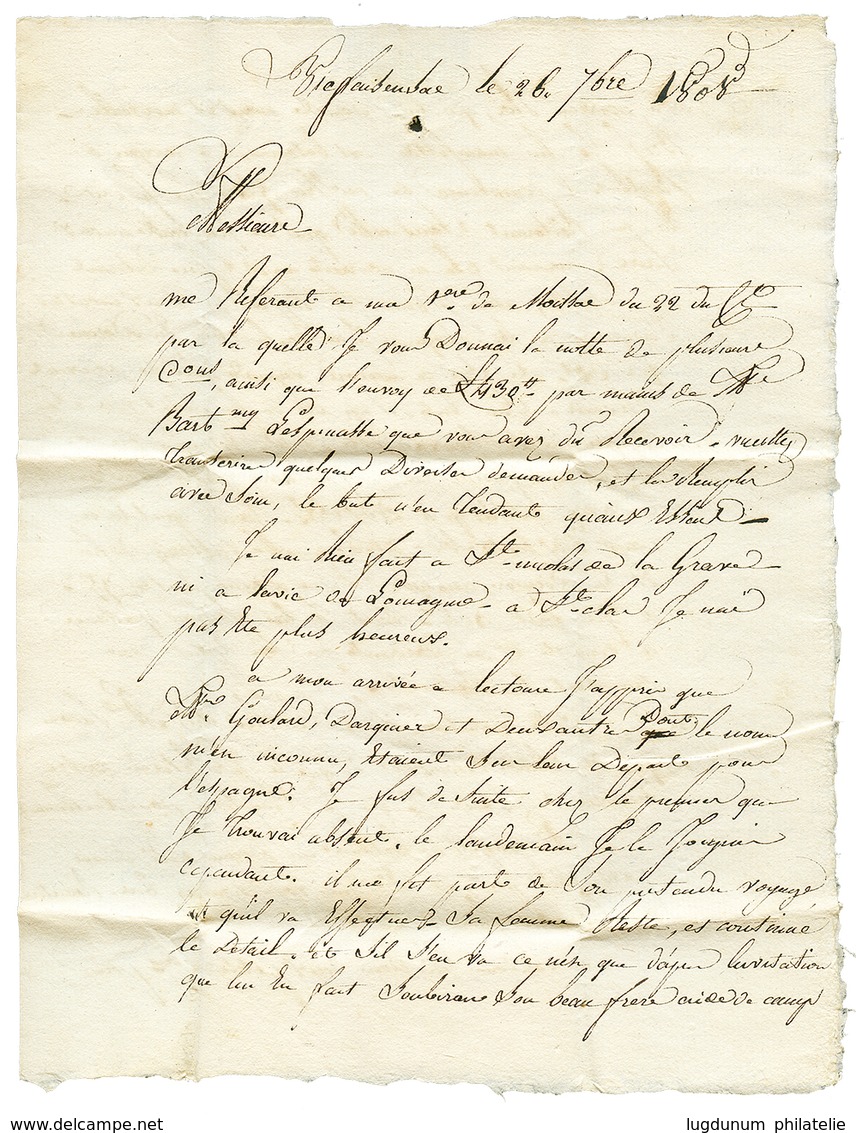 Vicfaisensac le 26 7bre 1808
Messieurs
me Referant a ma 1ere de Moissac du 22 du Ct
par la quelle Je vous Donnai la notte de plusieurs
Cons, ainsi que l'envoy de L430tt par mains de Mr
Bartmy Lespinasse que vous avez du Recevoir. veuillez
transcrire quelques Diverses demandes, et les Remplir
avec Soin, le but n'en tendant qu'aux Essent
Je nai Rien fait a St nicolas de la Grave
ni a lavit de Lomagne a St clar Je n'ai
pas Eté plus heureux.
a mon arrivée a lectoure J'appris que
Mrs Goulard, Darquier et Deux autres Dont que le nom
m'en inconnu, Etaient Sur leur Depart pour
l'espagne. Je fus de Suite chez le premier que
Je trouvai absent. le landemain Je le Joignis
cependant. il me fit part de Son pretendu voyage
et qu'il va Effectuer Sa femme Reste, et continue
le Detail. et S'il S'en va ce n'est que d'après linvitation
que lui En fait Soubiran Son beau frere aide de camp
lugdunum philatelie